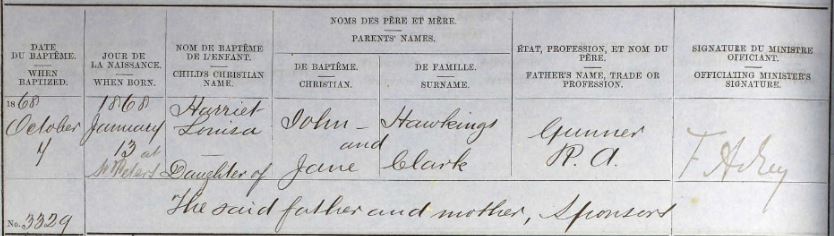 NOMS DES PÈRE ET MÈRE.
PARENTS' NAMES.
DATE DU BAPTÊME.
WHEN BAPTIZED.
JOUR DE LA NAISSANCE.
WHEN BORN.
NOM DE BAPTÊME DE L'ENFANT.
CHILD'S CHRISTIAN NAME.
DE BAPTÊME.
CHRISTIAN.
DE FAMILLE.
SURNAME.
ÉTAT, PROFESSION, ET NOM DU PÈRE.
FATHER'S NAME, TRADE OR PROFESSION.
SIGNATURE DU MINISTRE OFFICIANT.
OFFICIATING MINISTER'S SIGNATURE.
1868
October
4
1868
January
13 at
St Peters
Harriet
Louisa
Daughter of
John –
and
Jane
Hawkings
Clark
Gunner
R. A.
The said father and mother, Sponsors
No. 3329